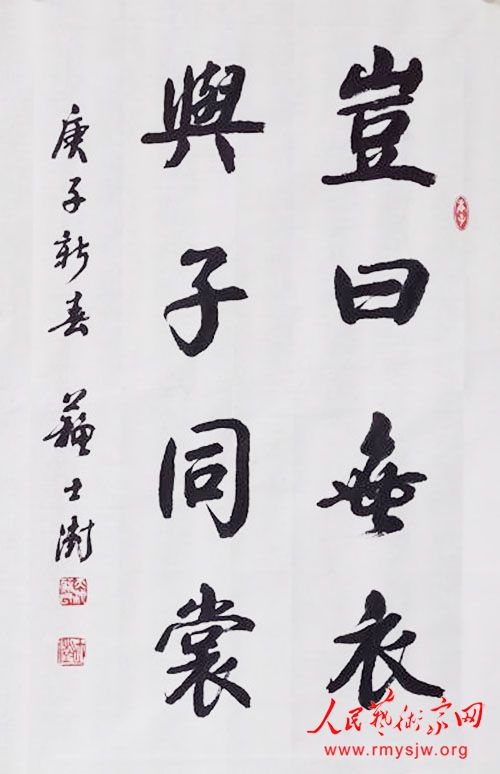 豈曰無衣
與子同裳
庚子新春 蘇士澍
人民藝術家网
www.rmysjw.org